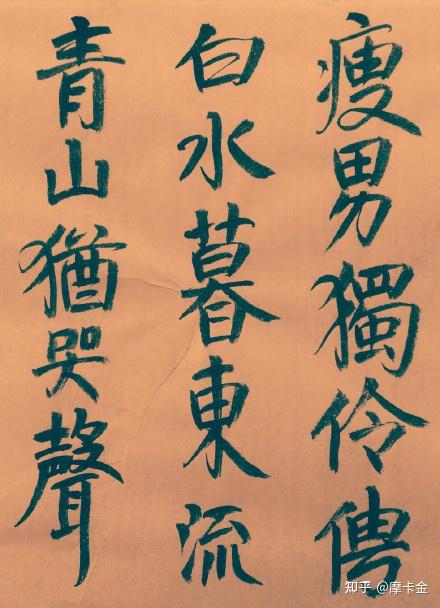 瘦男獨伶俜
白水暮東流
青山猶哭聲
知乎 @摩卡金